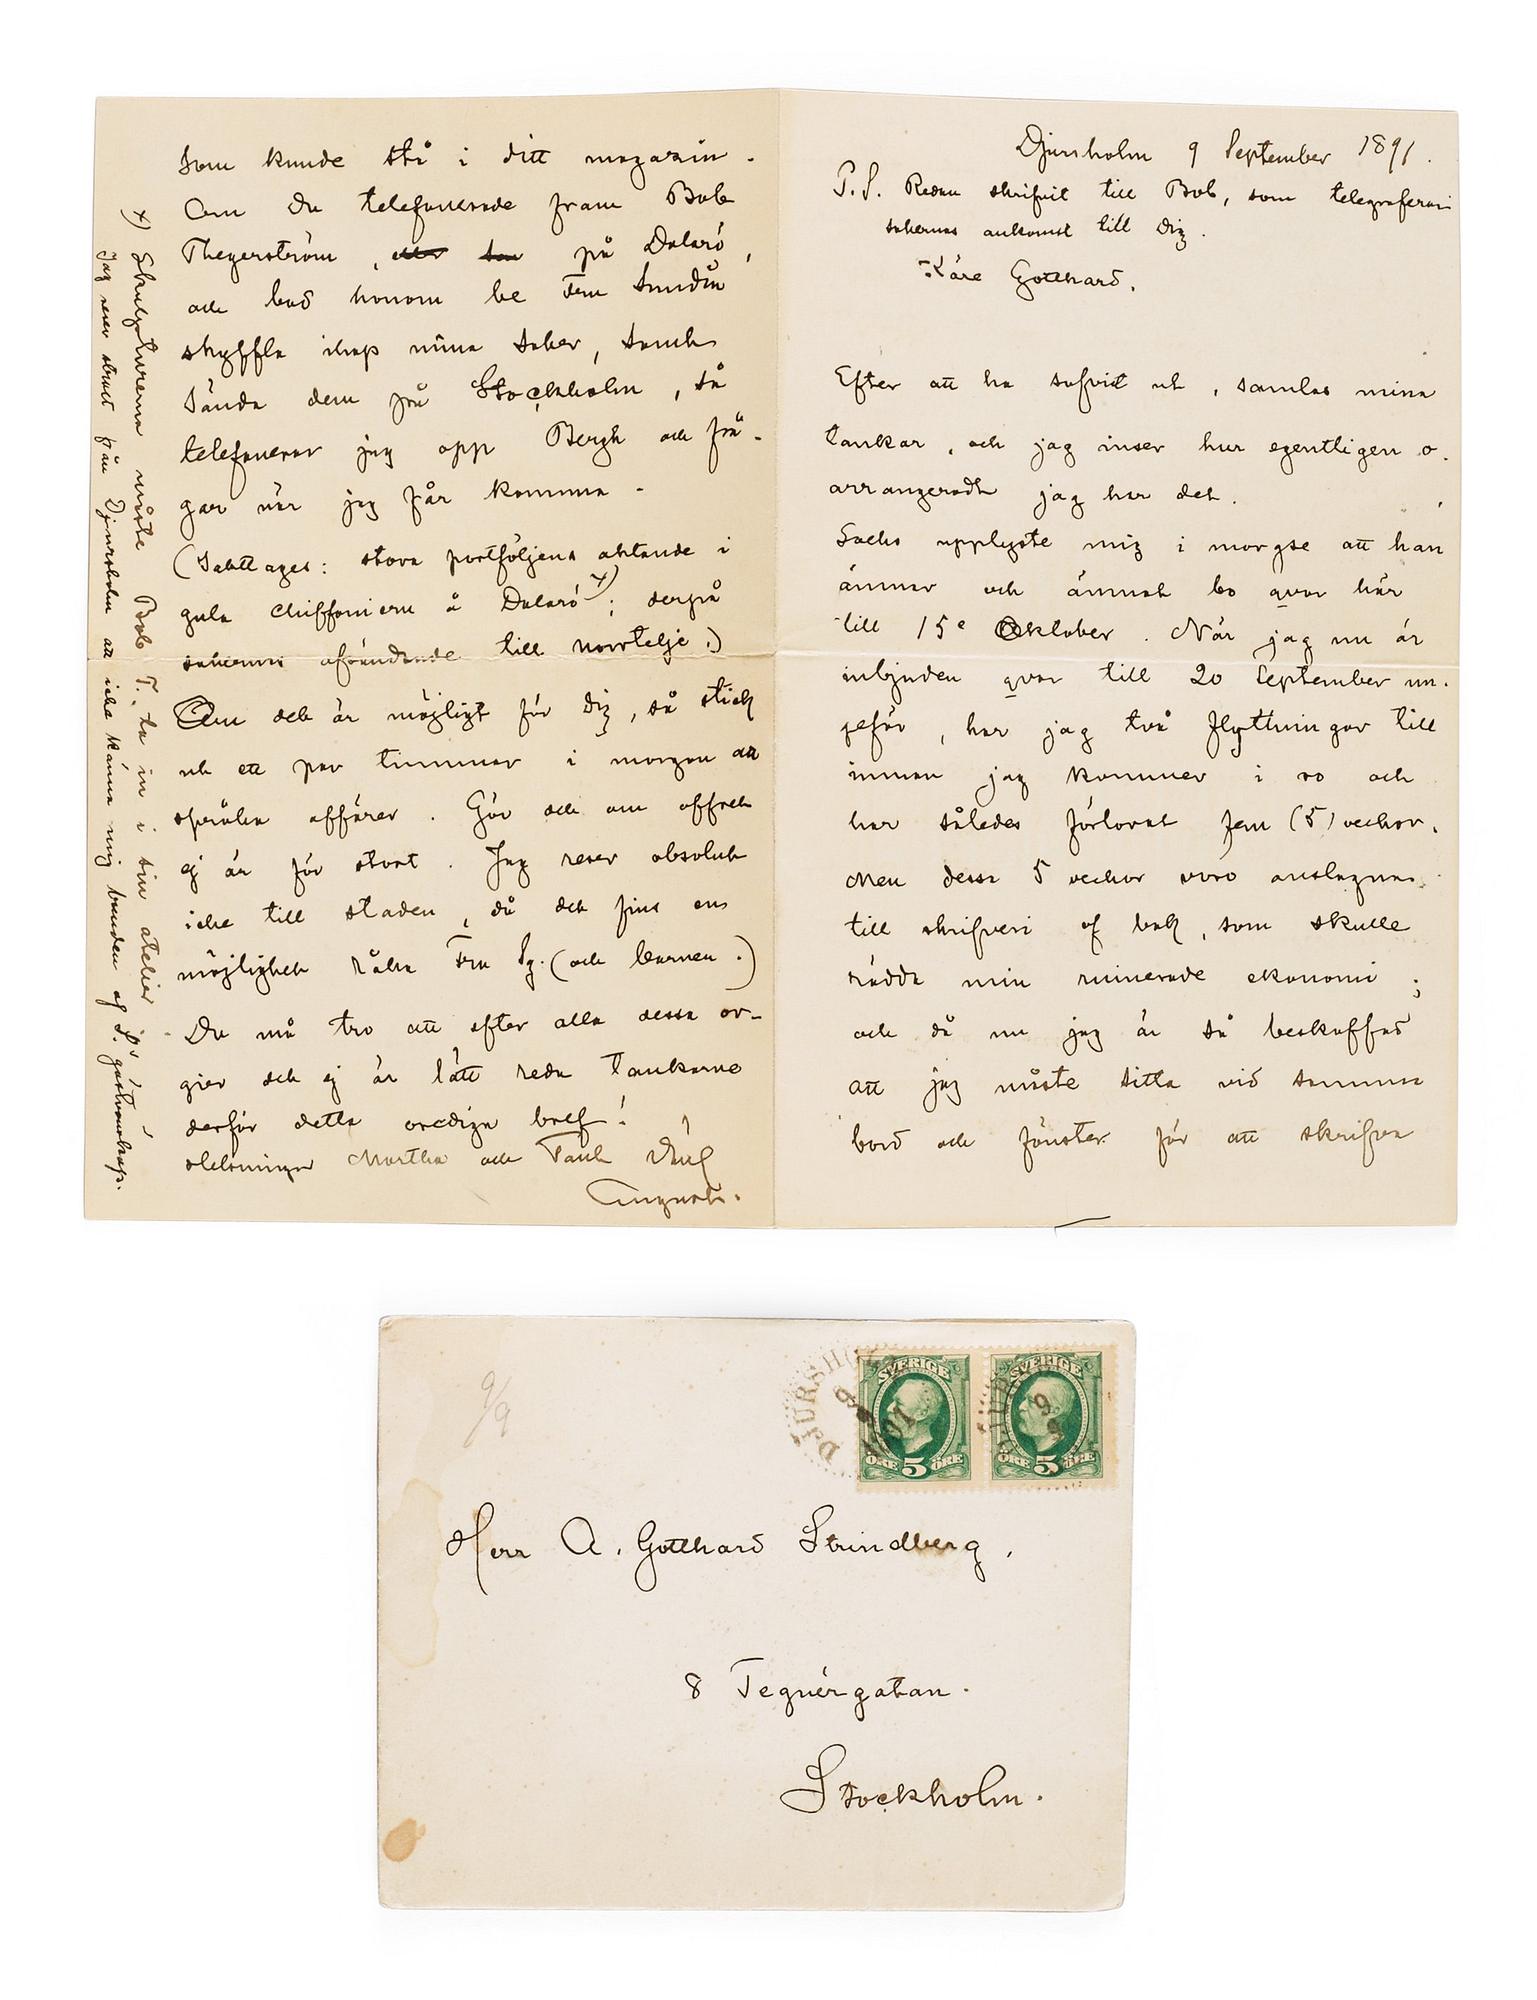 Djursholm 9 September 1891.
P.S. Redan skrifvit till Bob, som telegraferar
sakernas ankomst till Dig.
Käre Gotthard,
Efter att ha sofvit ut, samlas mina
tankar, och jag inser hur egentligen o-
arrangeradt jag har det.
Sachs upplyste mig i morgse att han
ämnar och ämnat bo qvar här
till 15e Oktober. När jag nu är
inbjuden qvar till 20 September un-
gefär, har jag två flyttningar till
innan jag kommer i ro och
har således förlorat fem (5) veckor.
Men dessa 5 veckor voro anslagna
till skrifveri af bok, som skulle
rädda min ruinerade ekonomi;
och då nu jag är så beskaffad
att jag måste sitta vid samma
bord och fönster för att skrifva
som kunde stå i ditt magazin.
Om Du telefonerade fram Bob
Thegerström, på Dalarö,
och bad honom be Fru Sundin
skyffla ihop mina saker, samt
sända dem på Stockholm, så
telefonerar jag opp Bergh och frå-
gar när jag får komma.
(Iakttages: stora portföljens aktande i
gula chiffoniern å Dalarö x); derpå
sakernas afsändande till Norrtelje.)
Om det är möjligt för Dig, så stick
ut ett par timmar i morgon att
språka affärer. Gör det om offret
ej är för stort. Jag reser absolut
icke till staden, då det fins en
möjlighet råka Fru Sg. (och barnen.)
Du må tro att efter alla dessa or-
gier det ej är lätt reda tankarne
derför detta orediga bref!
Helsningar Martha och Tant Din
August.
x) Skulpturerna måste Bob T. ta in i sin atelier
Jag reser strax från Djursholm att icke känna mig bunden af S:s gästvänskap.
9/9
DJURSHOLM
9
9
1891
SVERIGE
ÖRE 5 ÖRE
SVERIGE
ÖRE 5 ÖRE
DJURS
9
9
Herr A. Gotthard Strindberg,
8 Tegnérgatan.
Stockholm.